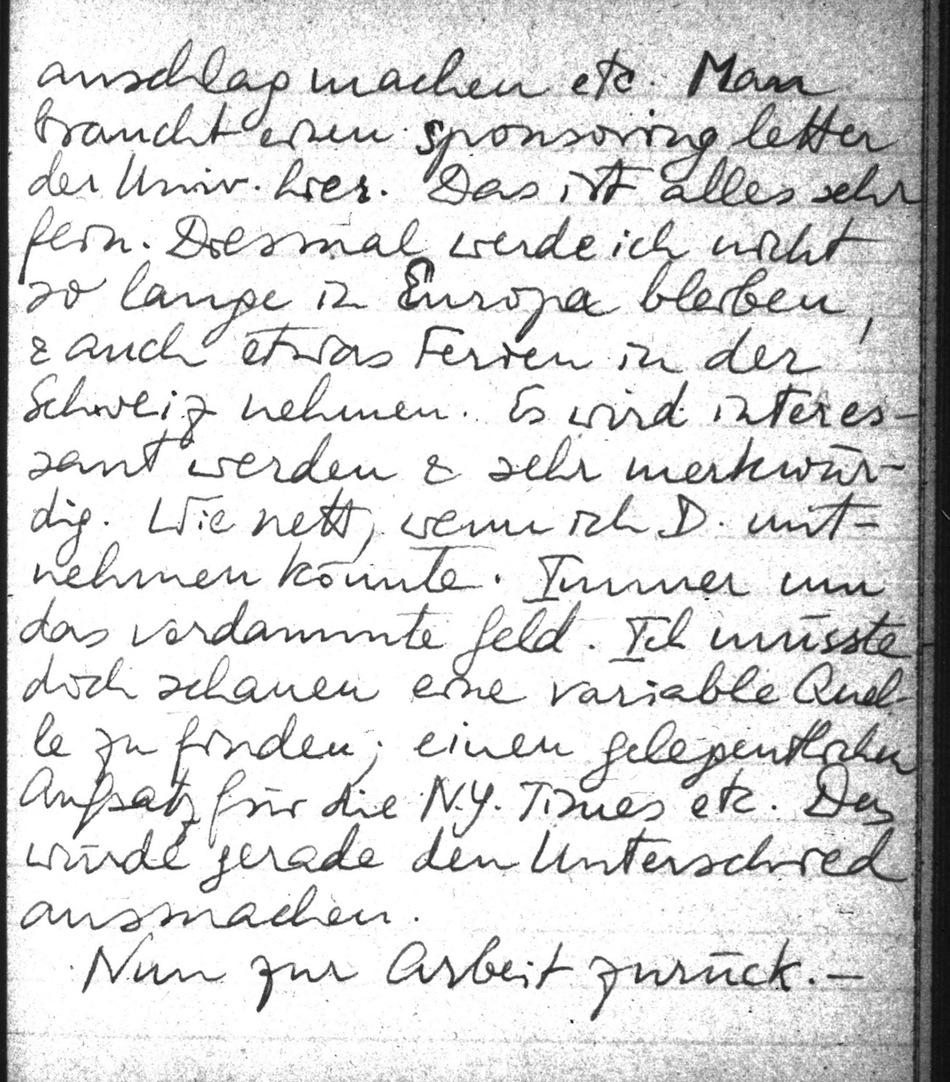 anschlag machen etc. Man
braucht einen sponsoring letter
der Univ. hier. Das ist alles sehr
fern. Diesmal werde ich nicht
so lange in Europa bleiben,
& auch etwas Ferien in der
Schweiz nehmen. Es wird interes-
sant werden & sehr merkwür-
dig. Wie nett, wenn ich D. mit-
nehmen könnte. Immer um
das verdammte Geld. Ich müsste
doch schauen eine variable Quel-
le zu finden; einen gelegentlichen
Aufsatz für die N.Y. Times etc. Das
würde gerade den Unterschied
ausmachen.
Nun zur Arbeit zurück. –